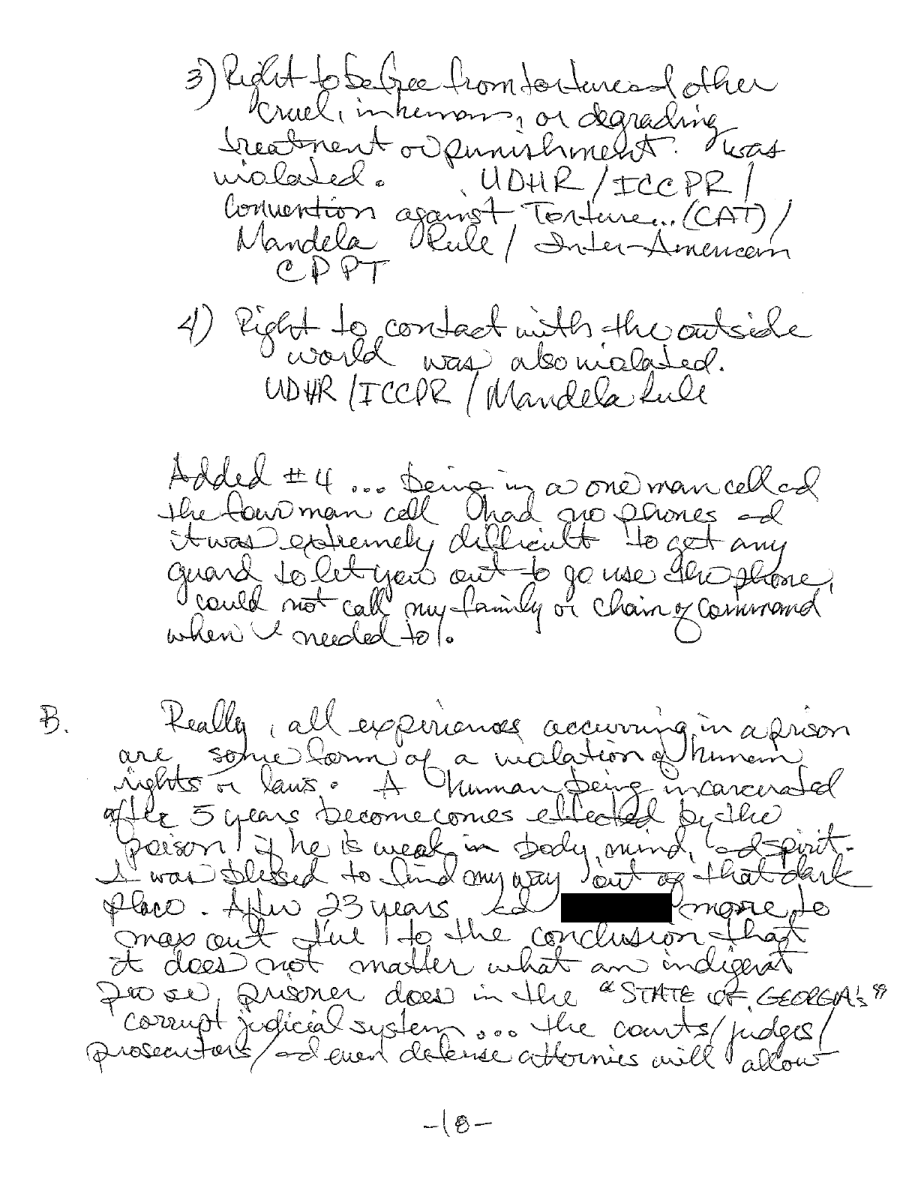 3) Right to be free from torture ad other
cruel, inhuman, or degrading
treatment or punishment. was
violated. UDHR / ICCPR /
Convention against Torture... (CAT) /
Mandela Rule / Inter-American
CPPT
4) Right to contact with the outside
world was also violated.
UDHR / ICCPR / Mandela Rule
Added #4 ... being in a one man cell ad
the four man cell had no phones ad
it was extremely difficult to get any
guard to let you out to go use the phone,
could not call my family or chain of command
when I needed to.
B. Really, all experiences occurring in a prison
are some form of a violation of human
rights or laws. A human being incarcerated
after 5 years becomecomes effected by the
poison if he is weak in body, mind, ad spirit.
I was blessed to find my way out of that dark
place. After 23 years ad more to
max out I've to the conclusion that
it does not matter what an indigent
pro se, prisoner does in the "STATE OF GEORGIA's"
corrupt judicial system ... the courts/judges/
prosecutors/ad even defense attornies will allow
-18-